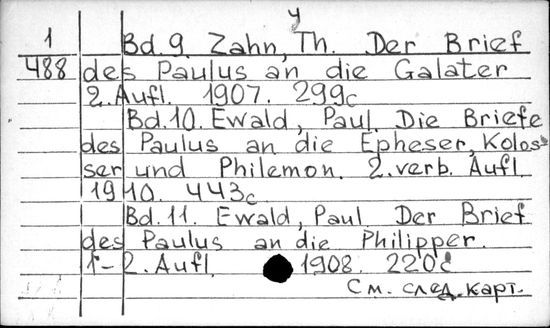 4
1 Bd. 9 Zahn, Th. Der Brief
488 des Paulus an die Galater
2. Aufl. 1907. 299с
Bd. 10. Ewald, Paul Die Briefe
des Paulus an die Epheser, Kolos-
ser und Philemon. 2. verb. Aufl.
1910. 443с
Bd. 11. Ewald, Paul Der Brief
des Paulus an die Philipper.
1-2. Aufl. 1908. 220с
См. след. карт.